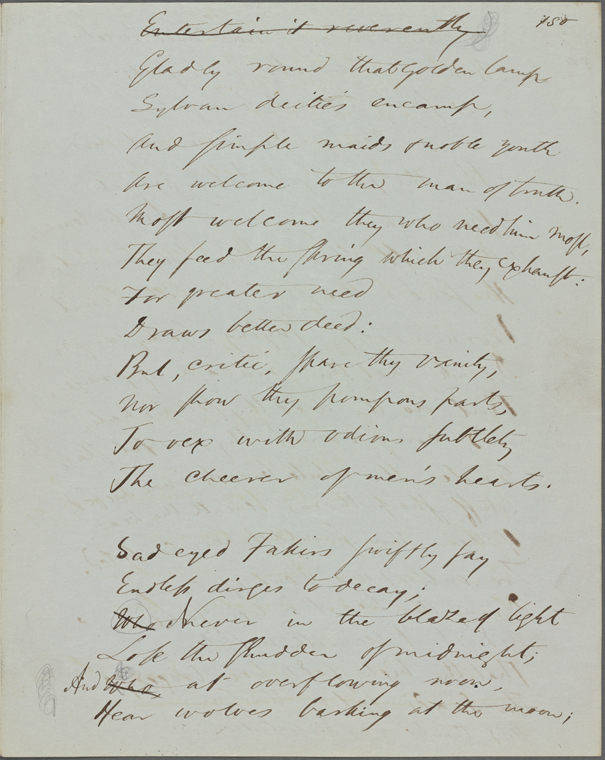 150
Entertain it reverently
Gladly round that golden lamp
Sylvan deities encamp,
And simple maids & noble youth
Are welcome to the man of truth.
Most welcome they who need him most,
They feed the spring which they exhaust:
For greater need
Draws better deed:
But, critic, spare thy vanity,
Nor show thy pompous parts,
To vex with odious subtlety
The cheerer of men's hearts.
Sad eyed Fakirs swiftly say
Endless dirges to decay;
Who Never in the blazed light
Lose the shudder of midnight;
And Who at overflowing noon,
Hear wolves barking at the moon;